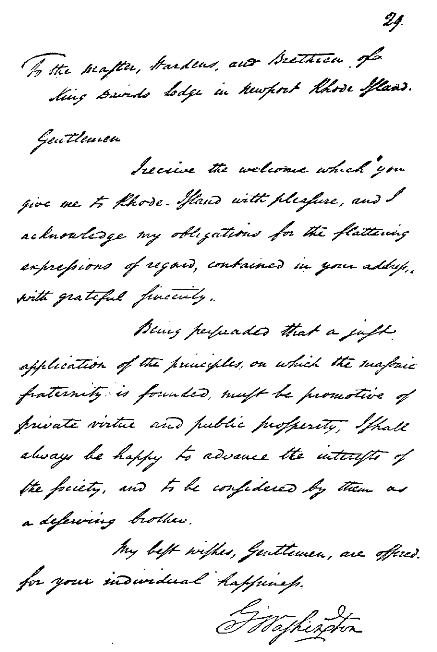 29.
To the Master, Wardens, and Brethren of
King Davids Lodge in Newport Rhode Island.
Gentlemen
I receive the welcome which you
give me to Rhode-Island with pleasure, and I
acknowledge my obligations for the flattering
expressions of regard, contained in your address,
with grateful sincerity.
Being persuaded that a just
application of the principles, on which the masonic
fraternity is founded, must be promotive of
private virtue and public prosperity, I shall
always be happy to advance the interests of
the Society, and to be considered by them as
a deserving brother.
My best wishes, Gentlemen, are offered
for your individual happiness.
G. Washington